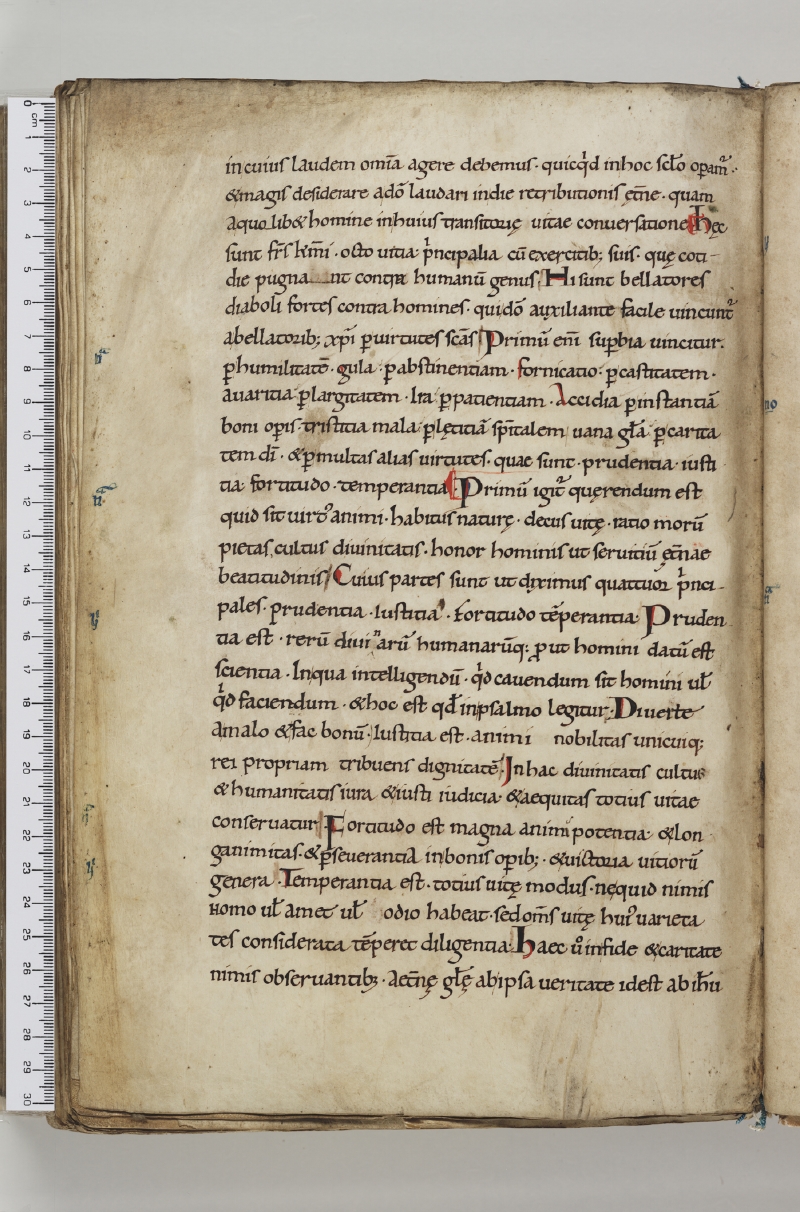 in cuius laudem omīa agere debemus · quicq̇d in hoc sc̄lo opam̄ᷣ ·
& magis desiderare ad ō laudari in die retributionis ęt̄ne · quam
a quolib& homine in huius transitorię uitae conuersatione hęc
sunt fr̄s k̄mi · octo uitia p̍ncipalia cū exercitib; suis · quę coti-
die pugna nt contra humanū genus Hi sunt bellatores
diaboli fortes contra homines · qui dō auxiliante facile uincunt᷑
a bellatorib; xp̄i ꝑ uirtutes sc̄as Primū en̄i suꝑbia uincitur ·
ꝑ humilitatē · gula ꝑ abstinentiam · fornicatio · ꝑ castitatem ·
auaritia ꝑ largitatem · Ira ꝑ patientiam · Accidia ꝑ instantiā
boni opis · tristitia mala ꝑ lętitiā sp̄italem uana gl̄a ꝑ carita
tem dī · & ꝑ multas alias uirtutes · quae sunt · prudentia · iusti
tia fortitudo · temperantia Primū igit᷑ querendum est
quid sit uirtꝰ animi · habitus naturę · decus uitę · ratio morū
pietas cultus diuinitatis · honor hominis ut seruitiū ęt̄nae
beatitudinis Cuius partes sunt ut diximus quattuor p̍nci-
pales · prudentia · Iustitia · fortitudo tēperantia · Pruden
tia est · rerū diuinarū humanarūq; ꝓut homini datū est
scientia · In qua intelligendū · q̇d cauendum sit homini ul̄
q̇d faciendum · & hoc est qd̄ in psalmo legitur · Diuerte
a malo & fac bonū · Iustitia est · animi nobilitas unicuiq;
rei propriam tribuens dignitatē In hac diuinitatis cultus
& humanitatis iura & iusti iudicia · & aequitas totius uitae
conseruatur Fortitudo est magna animi potentia · & lon
ganimitas · & ꝑseuerantia in bonis opib; · & uictoria uitiorū
genera · Temperantia est · totius uitę modus · ne quid nimis
homo ul̄ amet ul̄ odio habeat · sed om̄s uitę huiꝰ uarieta
tes considerata tēperet diligentia · Haec u̍o in fide & caritate
nimis obseruantib; · aet̄nę gl̄ę ab ipsa ueritate id est ab ih̄u